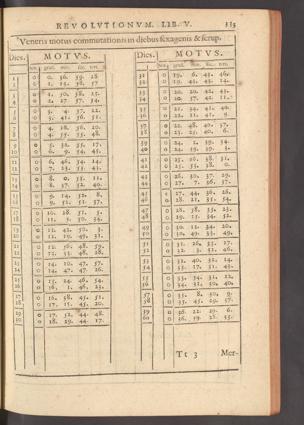 REVOLUTIONVM. LIB. V. 113
Veneris motus commutationis in diebus sexagenis & scrup.
Dies. MOTVS. Dies. MOTVS.
1 0 0. 36. 59. 28 31 0 19. 6. 43. 46.
2 0 1. 13. 58. 57 32 0 19. 43. 43. 14.
3 0 1. 50. 58. 25. 33 0 20. 20. 42. 43.
4 0 2. 27. 57. 54. 34 0 20. 57. 42. 11.
5 0 3. 4. 57. 22. 35 0 21. 34. 41. 40.
6 0 3. 41. 56. 51. 36 0 22. 11. 41. 9.
7 0 4. 18. 56. 20. 37 0 22. 48. 40. 37.
8 0 4. 55. 55. 48. 38 0 23. 25. 40. 6.
9 0 5. 32. 55. 17. 39 0 24. 2. 39. 34.
10 0 6. 9. 54. 45. 40 0 24. 39. 39. 3.
11 0 6. 46. 54. 14. 41 0 25. 16. 38. 31.
12 0 7. 23. 53. 43. 42 0 25. 53. 38. 0.
13 0 8. 0. 53. 11. 43 0 26. 30. 37. 29.
14 0 8. 37. 52. 40. 44 0 27. 7. 36. 57.
15 0 9. 14. 52. 8. 45 0 27. 44. 36. 26.
16 0 9. 51. 51. 37. 46 0 28. 21. 35. 54.
17 0 10. 28. 51. 5. 47 0 28. 58. 35. 23.
18 0 11. 5. 50. 34. 48 0 29. 35. 34. 52.
19 0 11. 42. 50. 2. 49 0 30. 12. 34. 20.
20 0 12. 19. 49. 31. 50 0 30. 49. 33. 49.
21 0 12. 56. 48. 59. 51 0 31. 26. 33. 17.
22 0 13. 33. 48. 28. 52 0 32. 3. 32. 46.
23 0 14. 10. 47. 57. 53 0 32. 40. 32. 14.
24 0 14. 47. 47. 26. 54 0 33. 17. 31. 43.
25 0 15. 24. 46. 54. 55 0 33. 54. 31. 12.
26 0 16. 1. 46. 23. 56 0 34. 31. 30. 40.
27 0 16. 38. 45. 51. 57 0 35. 8. 30. 9.
28 0 17. 15. 45. 20. 58 0 35. 45. 29. 37.
29 0 17. 52. 44. 48. 59 0 36. 22. 29. 6.
30 0 18. 29. 44. 17. 60 0 36. 59. 28. 35.
Tt 3 Mer-